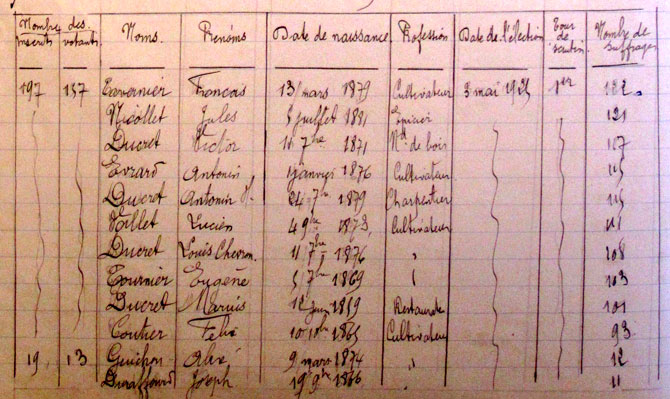 Nombre des Noms. Prénoms Date de naissance Profession Date de l'élection Tour de scrutin Nombre de suffrages
inscrits votants
197 137 Tavernier François 13 mars 1879 Cultivateur 3 mai 1925 1er 122
Nicollet Jules 5 juillet 1881 Epicier 121
Ducret Victor 11 7bre 1871 Nd de bois 117
Evrard Antonin janvier 1876 Cultivateur 115
Ducret Antonin 24 7bre 1879 Charpentier 115
Villet Lucien 4 9bre 1873 Cultivateur 111
Ducret Louis Chevron. 11 7bre 1876 " 108
Tournier Eugène 5 7bre 1869 " 103
Ducret Marius 12 juin 1859 101
Coutier Félix 10 10bre 1865 Cultivateur 93
19 13 Guichon Aimé 9 mars 1874 " 12
Joseph 19 9bre 1866 11